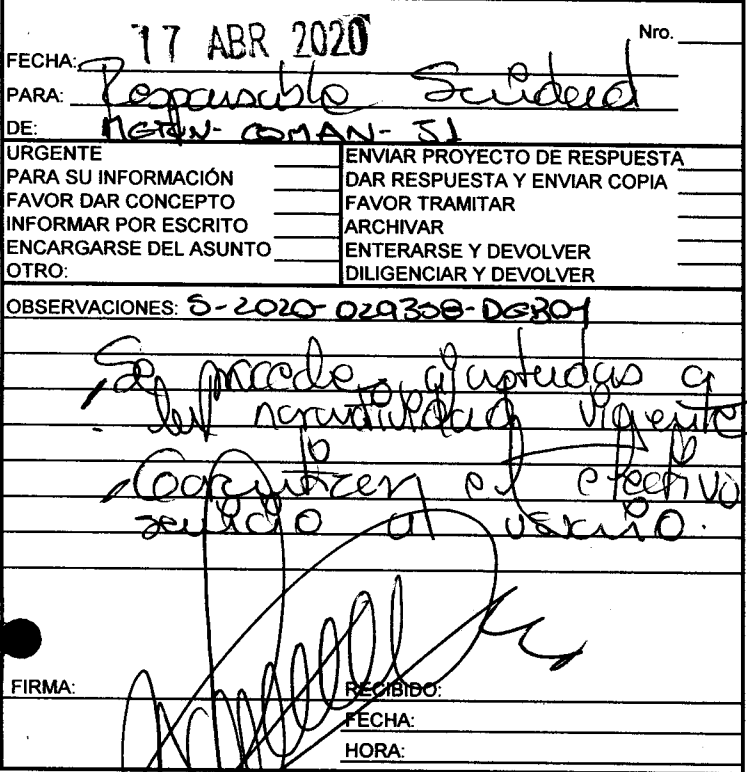 17 ABR 2020
Nro.
FECHA:
PARA: Responsable Sanidad
DE: METUN-COMAN-J1
URGENTE
PARA SU INFORMACIÓN
FAVOR DAR CONCEPTO
INFORMAR POR ESCRITO
ENCARGARSE DEL ASUNTO
OTRO:
ENVIAR PROYECTO DE RESPUESTA
DAR RESPUESTA Y ENVIAR COPIA
FAVOR TRAMITAR
ARCHIVAR
ENTERARSE Y DEVOLVER
DILIGENCIAR Y DEVOLVER
OBSERVACIONES: S-2020-029308-
Se procede, ajustudas a
la normatividad vigente
Garanticen el efectivo
servicio al usuario.
FIRMA:
RECIBIDO:
FECHA:
HORA: